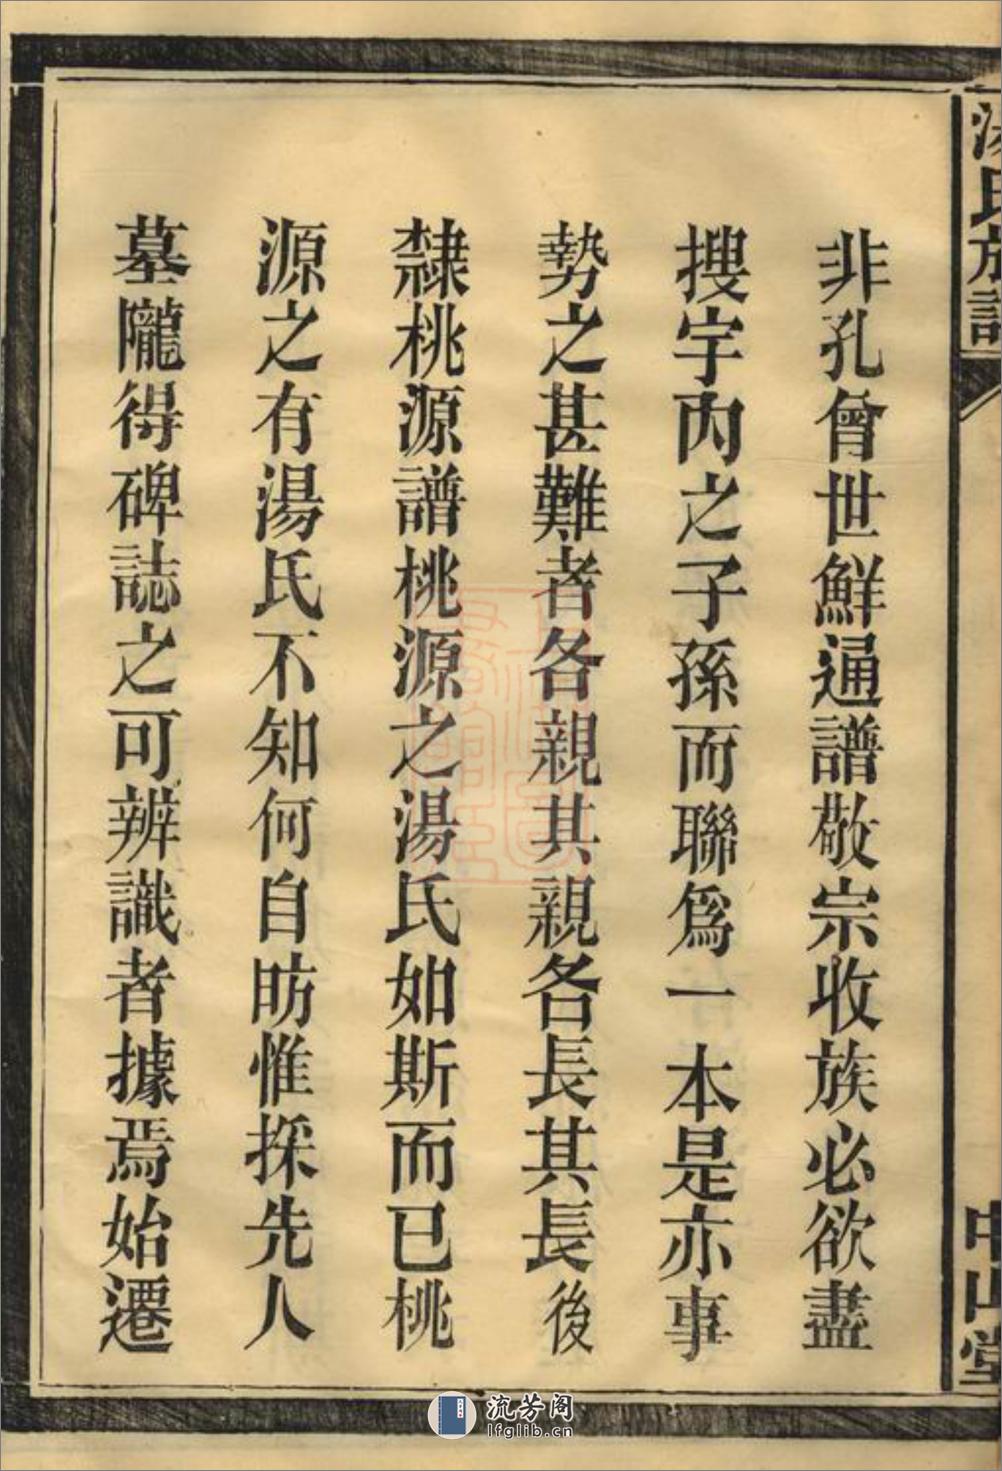 湯氏族譜
中山堂
非孔曾世鮮通譜敬宗收族必欲盡
搜宇內之子孫而聯爲一本是亦事
勢之甚難者各親其親各長其長後
隸桃源譜桃源之湯氏如斯而已桃
源之有湯氏不知何自昉惟採先人
墓隴得碑誌之可辨識者據焉始遷
流芳阁
lfglib.cn